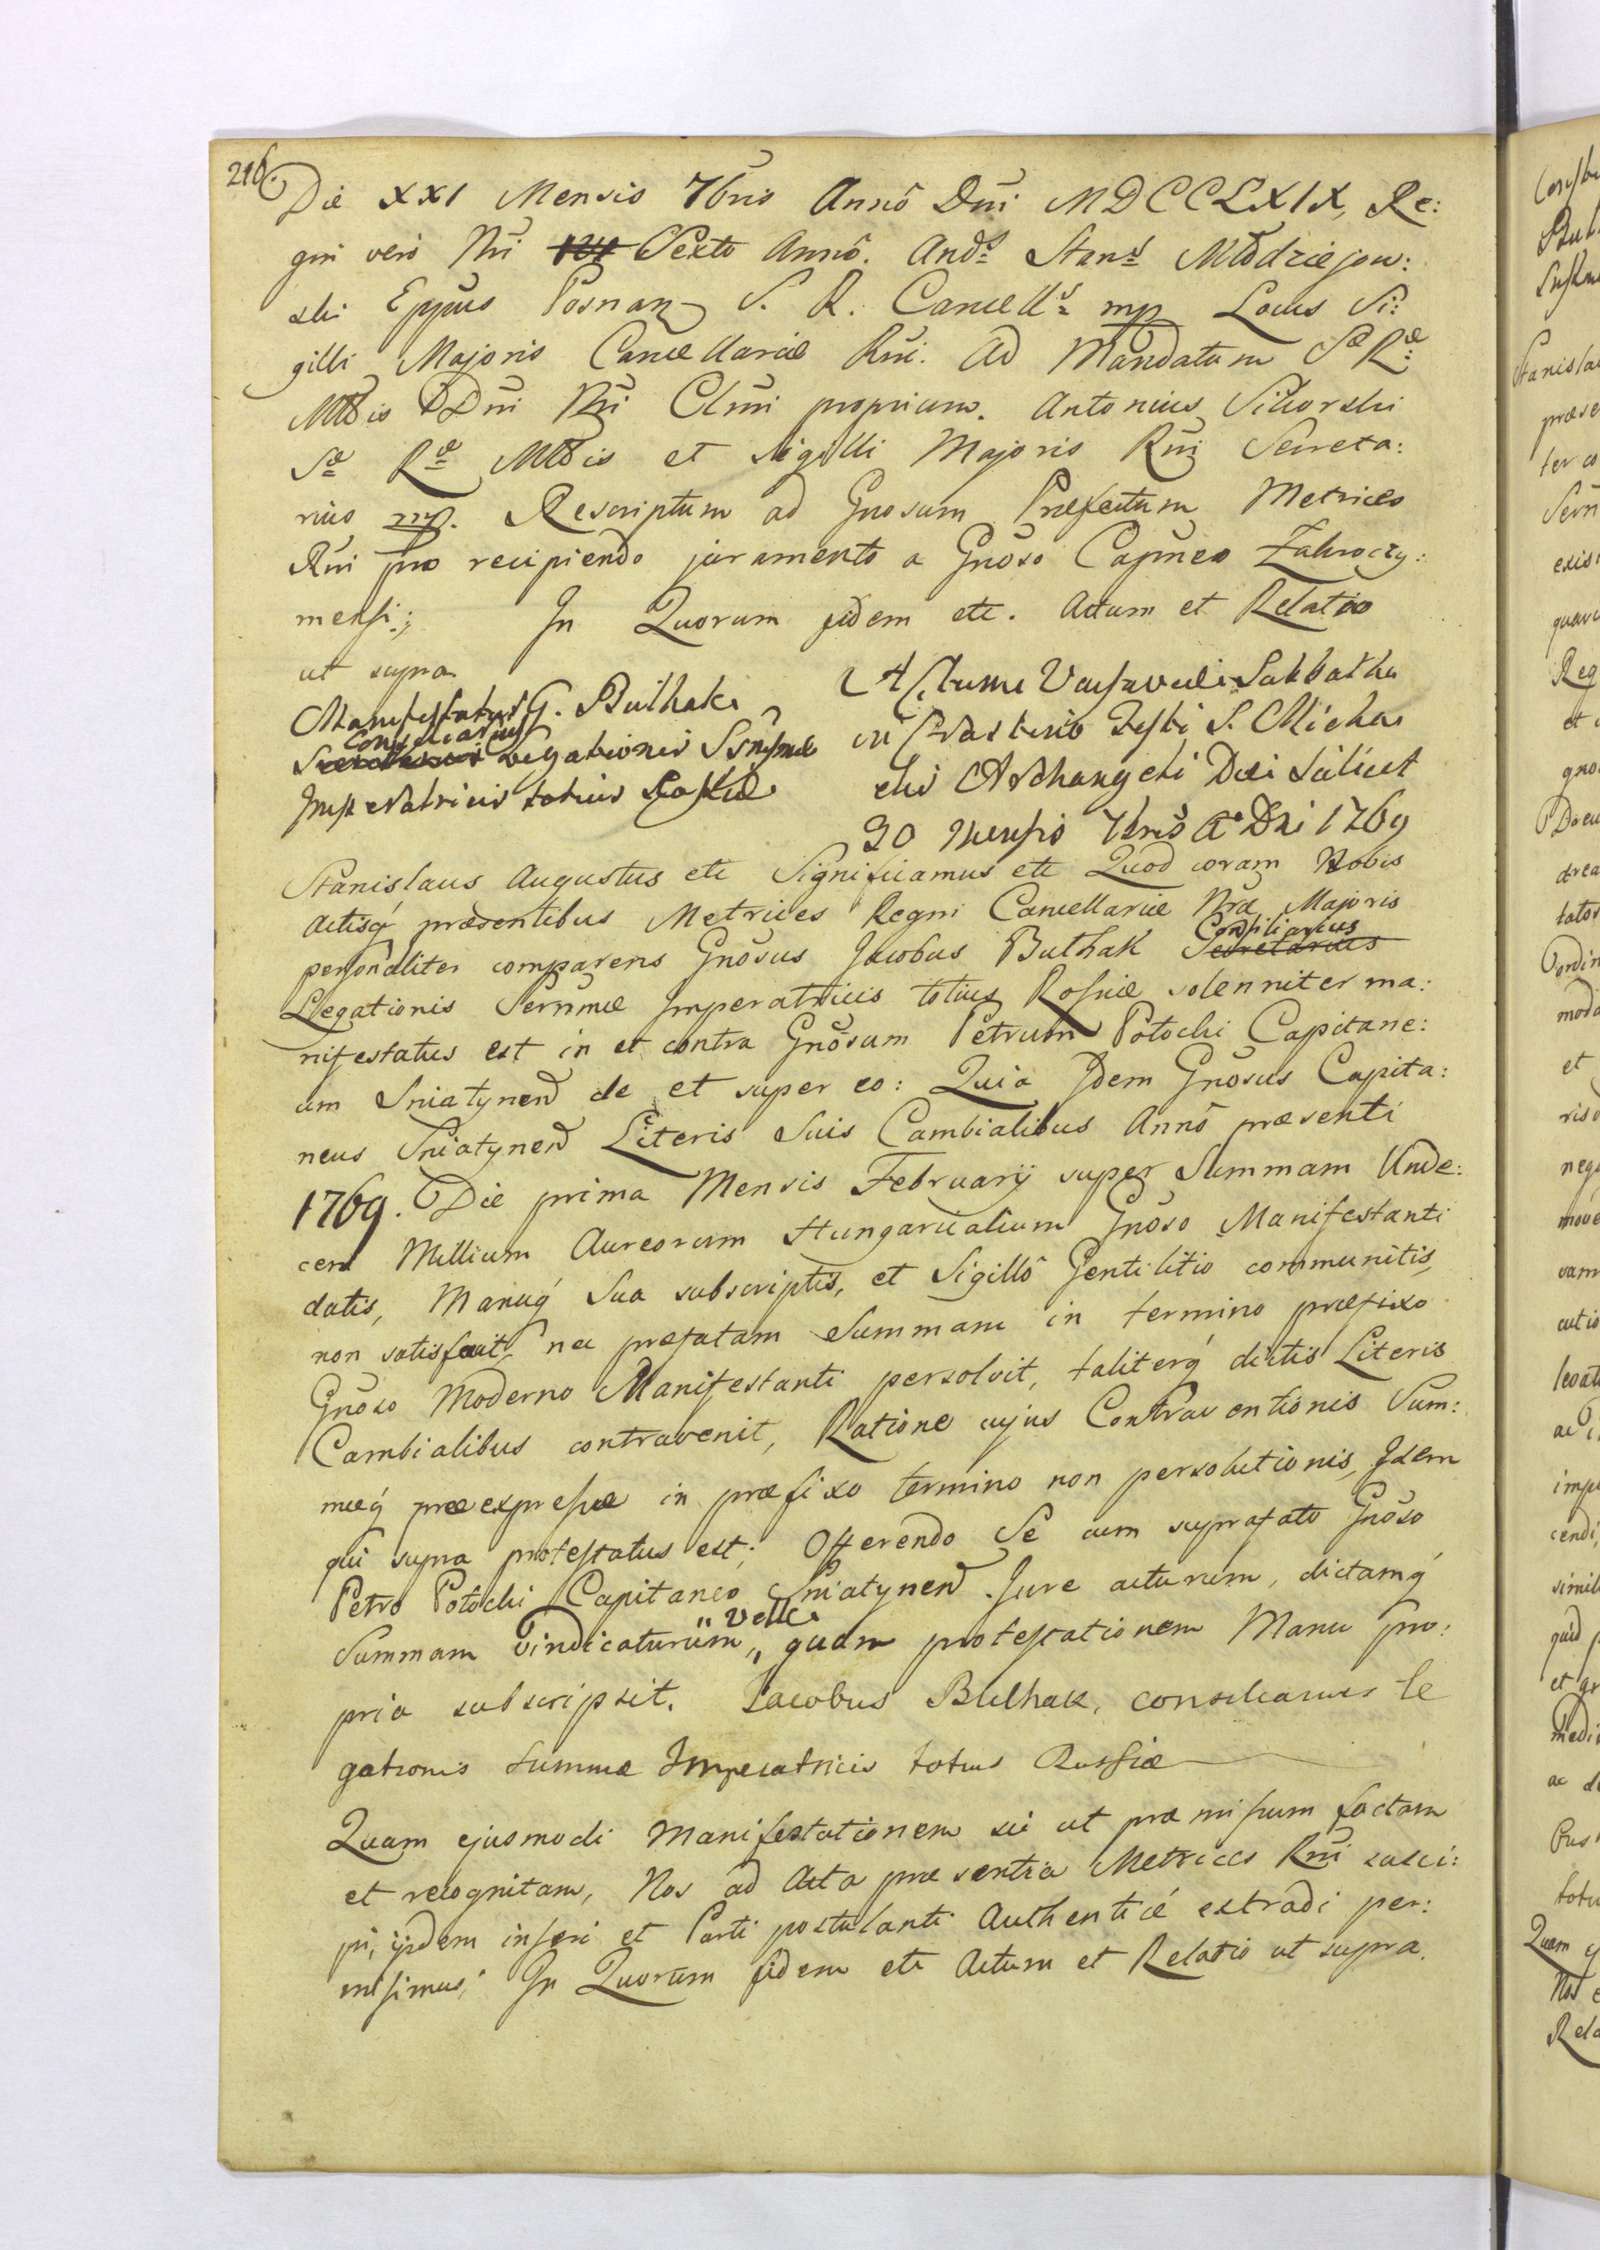 216.
Die XXI Mensis 7bris Annô Dni MDCCLXIX, Re:
gni vero Nri ~~124~~ Sexto Annô. Ands Stans Młodziejow:
ski Eppus Posnan S. R. Cancells mp Locus Si:
gilli Majoris Cancellariæ Rni. Ad Mandatum Sæ Ræ
Mttis DDni Nri Clmi proprium. Antonius Sikorski
Sæ Ræ Mttis et Sigilli Majoris Rni Secreta:
rius mp. Rescriptum ad Gnosum Præfectum Metrices
Rni pro recipiendo juramento a Gnoso Capneo Zakroczy:
mensi; In Quorum fidem etc. Actum et Relatio
ut supra
Manifestatur G. Bułhak
Consiliarius
~~Secretarius~~ Legationis Ssnsmæ
Imperatricis totius Rossiæ
Actum Varsaviæ Sabbatho
in Crastino Festi S. Micha
elis Archangeli Die scilicet
30 Mensis 7bris Ao Dni 1769
Stanislaus Augustus etc Significamus etc Quod coram Nobis
Actisq́ præsentibus Metrices Regni Cancellariæ Nræ Majoris
personaliter comparens Gnosus Jacobus Bułhak ~~Secretarius~~ Consiliarius
Legationis Sernmæ Imperatricis totius Rossiæ solenniter ma:
nifestatus est in et contra Gnosum Petrum Potocki Capitane:
um Sniatynen de et super eo: Quia Idem Gnosus Capita:
neus Sniatynen Literis Suis Cambialibus Annô præsenti
1769. Die prima Mensis Februarij super Summam Unde:
cem Millium Aureorum Hungaricalium Gnoso Manifestanti
datis, Manuq́ Sua subscriptis, et Sigillô Gentilitio communitis,
non satisfecit, nec præfatam Summam in termino præfixo
Gnoso Moderno Manifestanti persolvit, taliterq́ dictis Literis
Cambialibus contravenit, Ratione cujus Contraventionis Sum:
mæq́ præexpressæ in præfixo termino non persolutionis, Idem
qui supra protestatus est; Offerendo Se cum suprafato Gnoso
Petro Potocki Capitaneo Sniatynen Jure acturum, dictamq́
Summam vindicaturum „ velle „ quam protestationem Manu pro:
pria subscripsit. Jacobus Bulhak, consiliarius le
gationis summæ Imperatricis totius Russiæ
Quam ejusmodi Manifestationem sic ut præmissum factam
et recognitam, Nos ad Acta præsentia Metrices Rni susci:
pi, ijsdem inseri et Parti postulanti Authenticé extradi per:
misimus; In Quorum fidem etc Actum et Relatio ut supra.